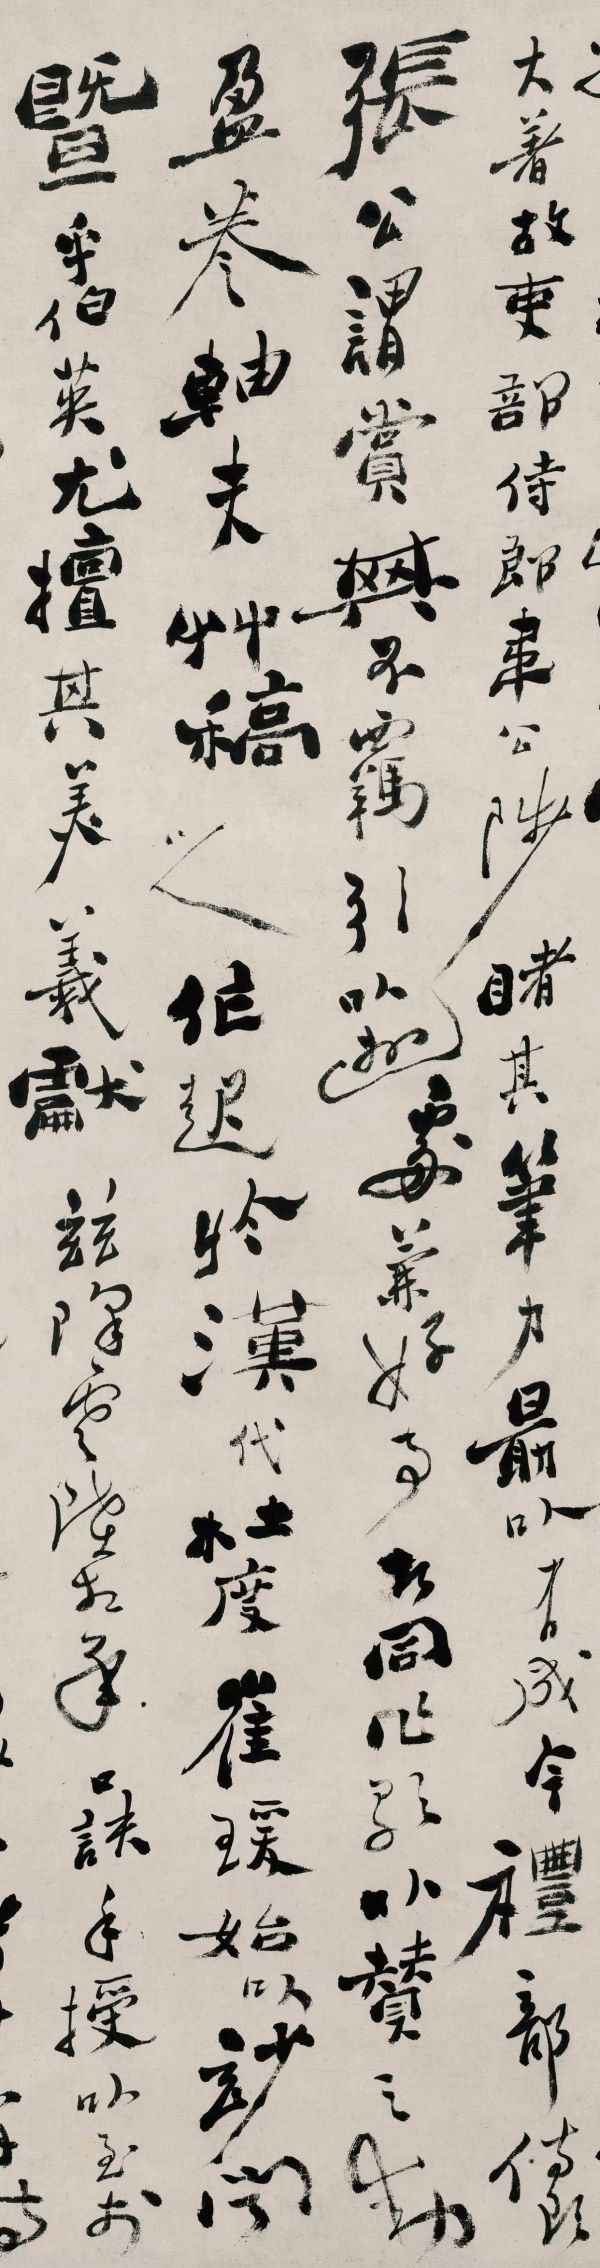 大著故吏部侍郎韋公陟睹其筆力勗以有成今禮部侍郎
張公謂賞其不羈引以遊處兼好事者同作歌以贊之動
盈卷軸夫艸稿之作起於漢代杜度崔瑗始以玅聞
暨乎伯英尤擅其美羲獻茲降虞陸相承口訣手授以至於